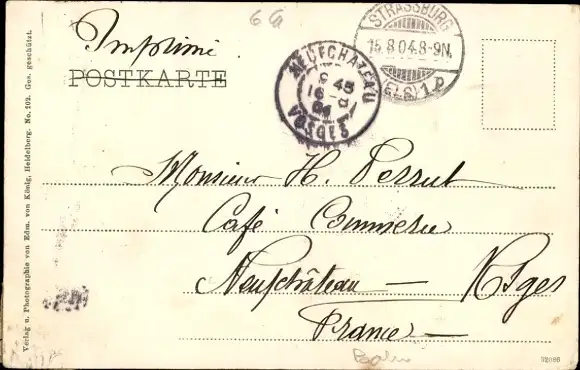 6
STRASSBURG
15.8.04.8-9N.
(ELS) 1P
Imprimé
POSTKARTE
NEUFCHATEAU
9 45
16 - 8
04
VOSGES
Monsieur H. Perrut
Café Commerce
Neufchâteau — Vosges
France —
Verlag u. Photographie von Edm. von König, Heidelberg. No. 103. Ges. geschützt.